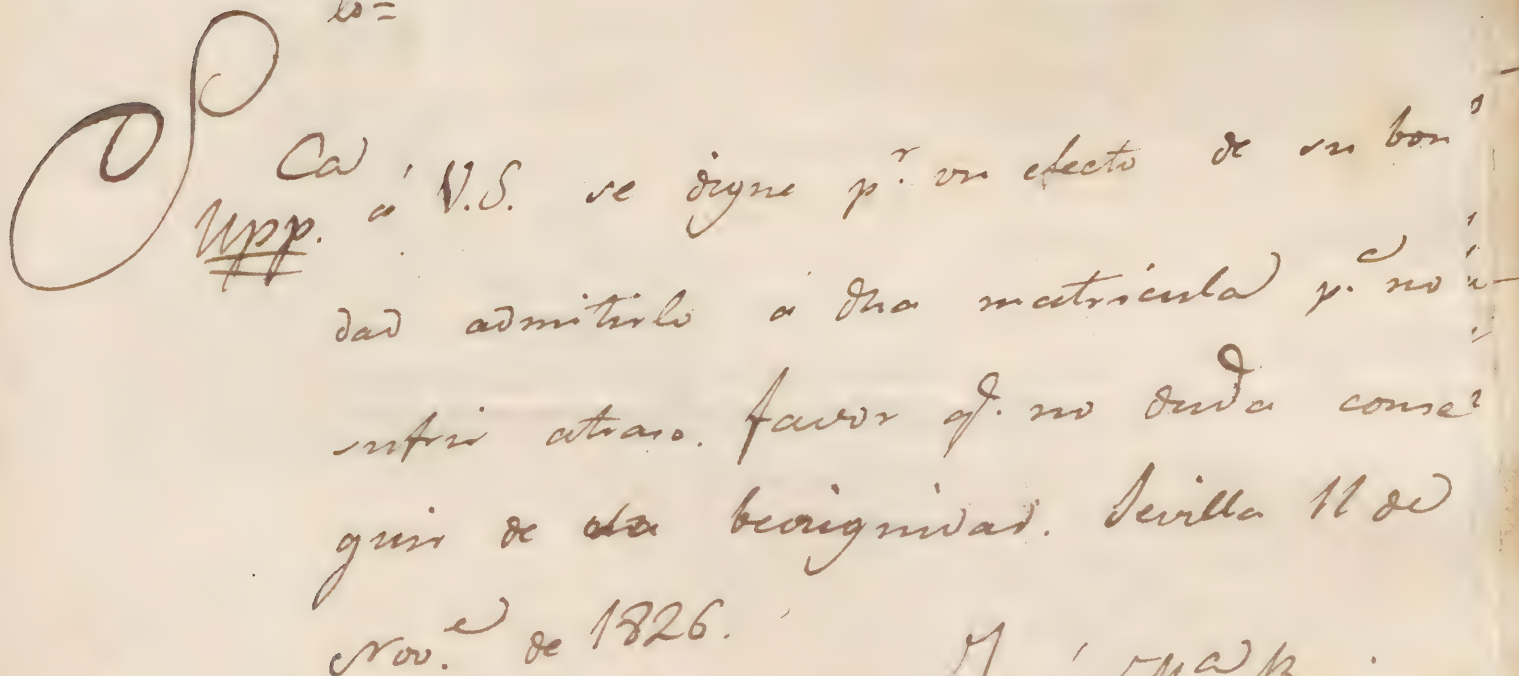 lo=
Supp.ca á V.S. se digne p.r un efecto de su bon
dad admitirlo á dha matrícula p.a no
sufrir atraso. favor q.e no duda conse
guir de benignidad. Sevilla 11 de
Nov.e de 1826.